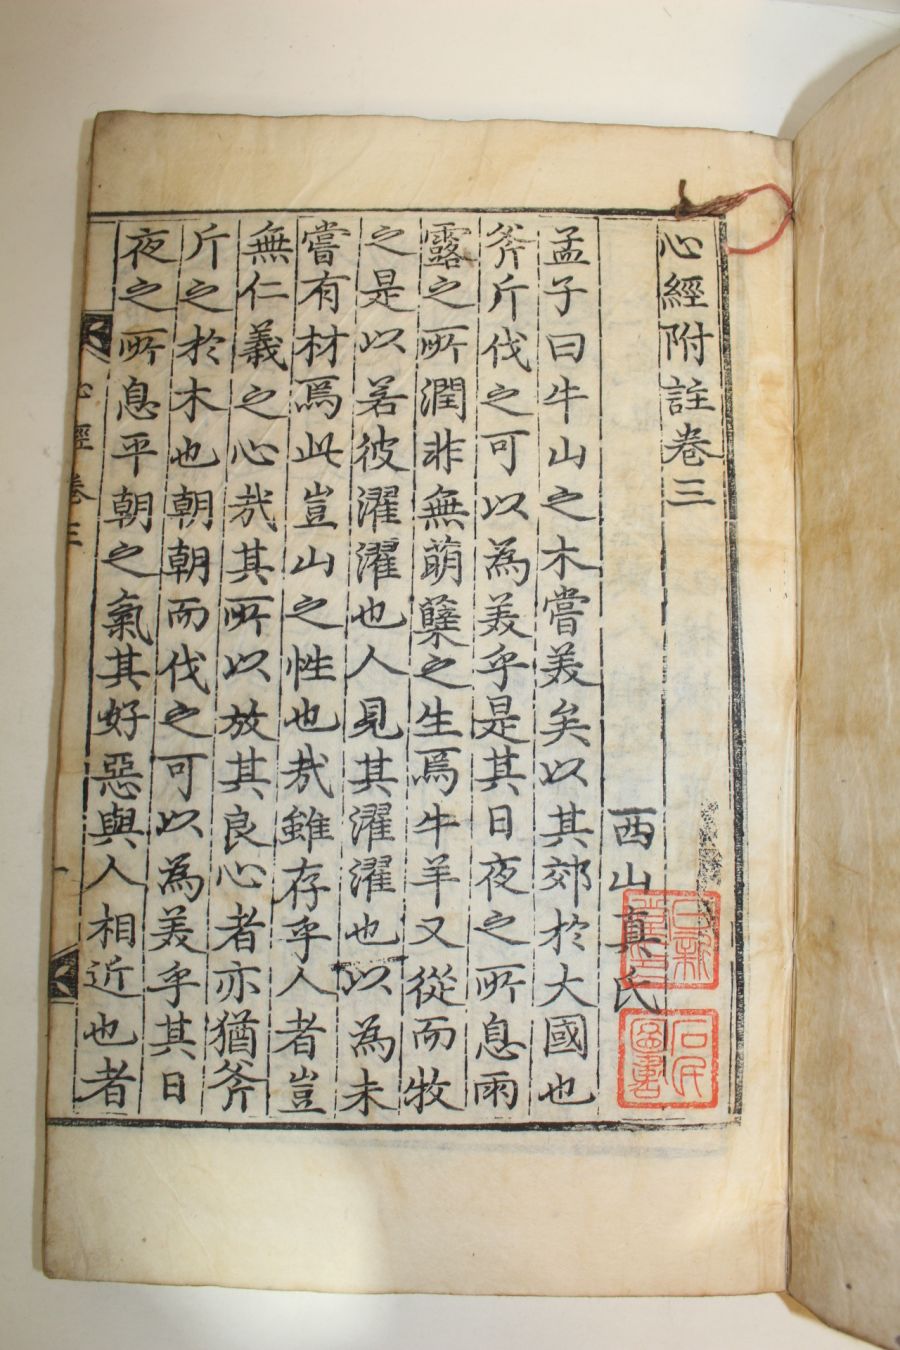 心經附註卷三
西山真氏
孟子曰牛山之木嘗美矣以其郊於大國也
斧斤伐之可以為美乎是其日夜之所息雨
露之所潤非無萌蘖之生焉牛羊又從而牧
之是以若彼濯濯也人見其濯濯也以為未
嘗有材焉此豈山之性也哉雖存乎人者豈
無仁義之心哉其所以放其良心者亦猶斧
斤之於木也朝朝而伐之可以為美乎其日
夜之所息平朝之氣其好惡與人相近也者
心經卷三